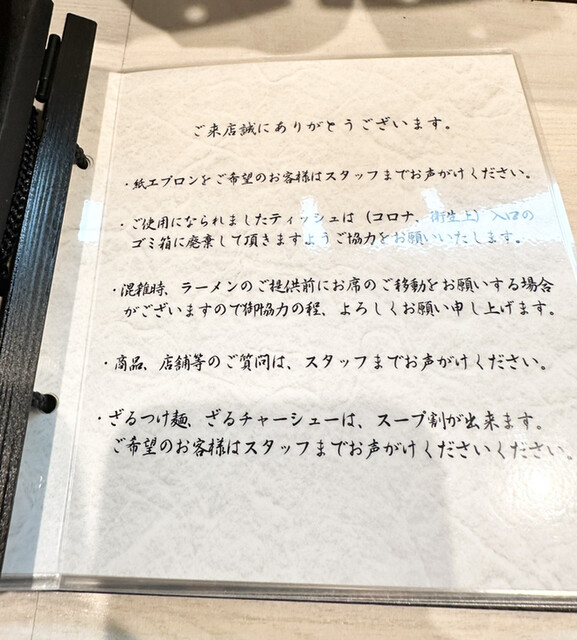 ご来店誠にありがとうございます。
・紙エプロンをご希望のお客様はスタッフまでお声がけください。
・ご使用になられましたティッシュは(コロナ、衛生上)入口の
ゴミ箱に廃棄して頂きますようご協力をお願いいたします。
・混雑時、ラーメンのご提供前にお席のご移動をお願いする場合
がございますので御協力の程、よろしくお願い申し上げます。
・商品、店舗等のご質問は、スタッフまでお声がけください。
・ざるつけ麺、ざるチャーシューは、スープ割が出来ます。
ご希望のお客様はスタッフまでお声がけくださいください。